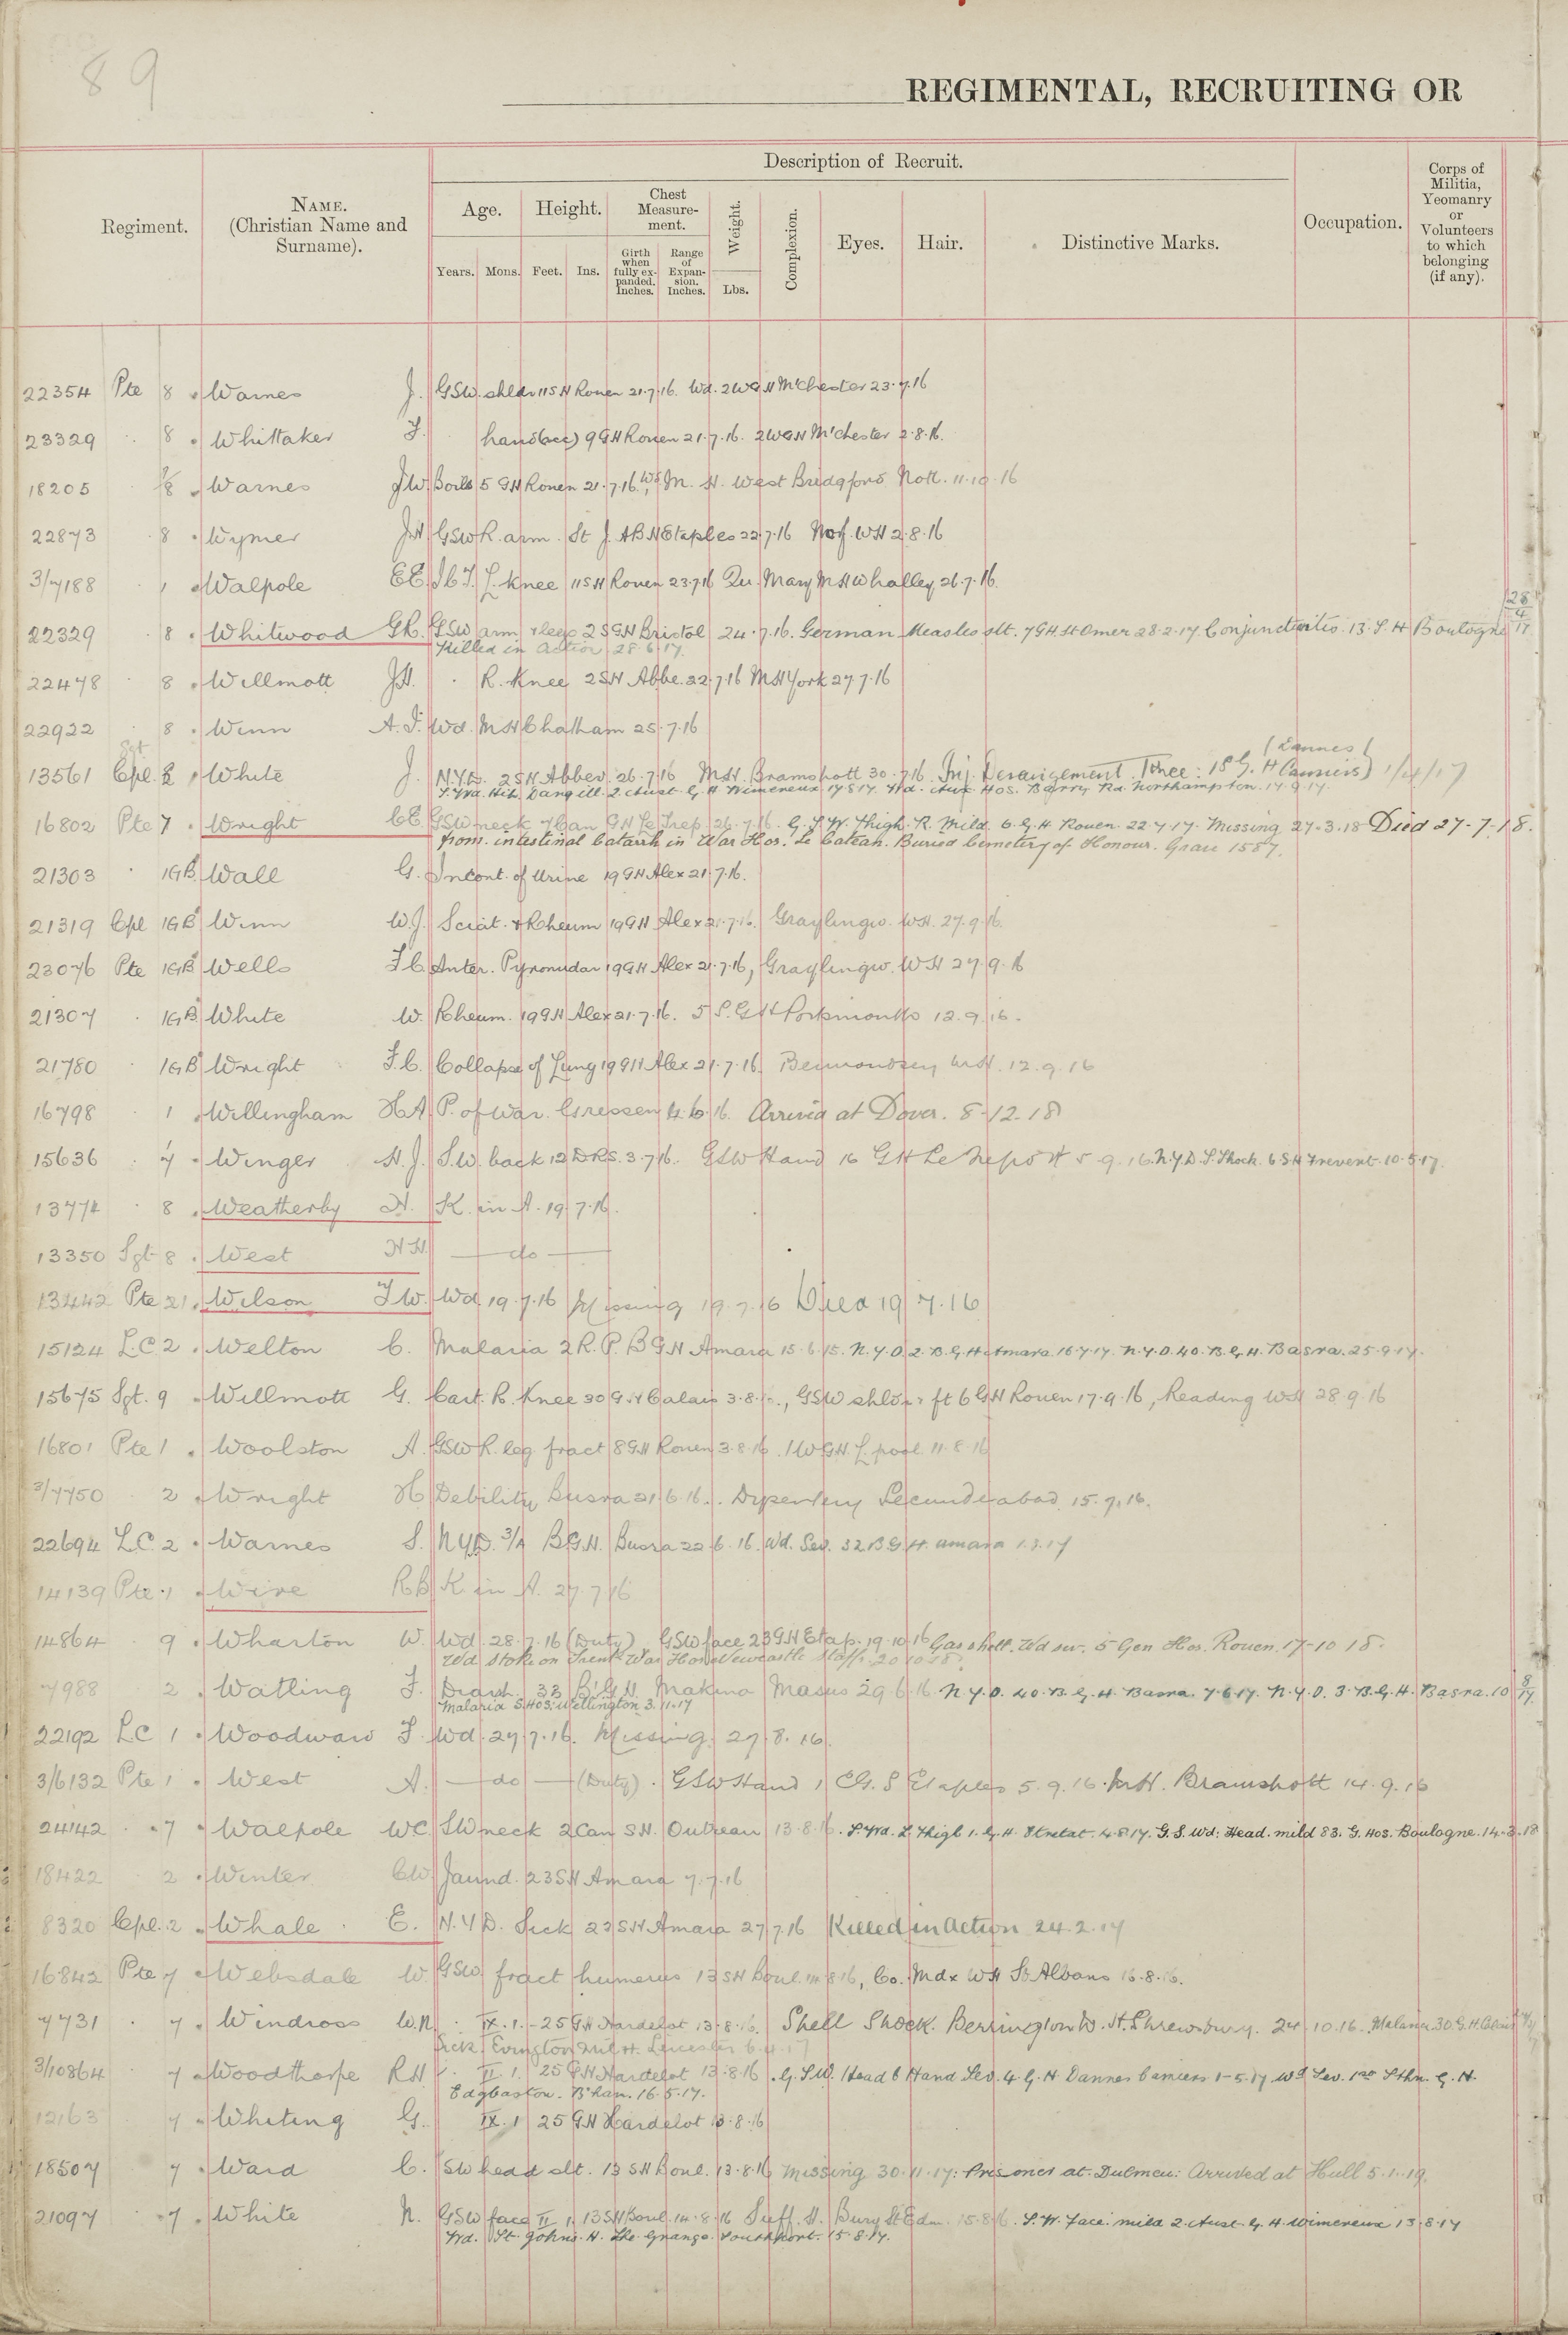 89
REGIMENTAL, RECRUITING OR
Description of Recruit.
Regiment.
NAME.
(Christian Name and
Surname).
Age.
Height.
Chest
Measure-
ment.
Weight.
Complexion.
Eyes.
Hair.
Distinctive Marks.
Occupation.
Corps of
Militia,
Yeomanry
or
Volunteers
to which
belonging
(if any).
Years.
Mons.
Feet.
Ins.
Girth
when
fully ex-
panded.
Inches.
Range
of
Expan-
sion.
Inches.
Lbs.
22354 Pte 8 Warnes J. GSW. shldr 11 S H Rouen 21.7.16. Wd. 2 W G H M'Chester 23.7.16
23329 " 8 Whittaker F. " hand (acc) 9 G H Rouen 21.7.16. 2 W G H M'chester 2.8.16.
18205 " 7/8 Warnes J W. Boils 5 G H Rouen 21.7.16. Wd. M. H. West Bridgford Nott. 11.10.16
22873 8 Wymer J H GSW R. arm. St J. A B H Etaples 22.7.16 Norf. W H 2.8.16
3/7188 1 Walpole E E. I C T. L. knee 11 S H Rouen 23.7.16 Qu. Mary M H Whalley 26.7.16.
22329 8 Whitwood G R. GSW arm & legs 2 S G H Bristol 24.7.16. German Measles slt. 7 G H St Omer 28.2.17. Conjunctivitis. 13. S. H Boulogne 28/4/17
Killed in action 28.6.17.
22478 " 8 Willmott J H. " R. Knee 2 S H Abbe. 22.7.16 M H York 27.7.16
22922 8 Winn A. F. Wd. M H Chatham 25.7.16
Sgt
13561 Cpl. 8 White J. N.Y.D. 2 S H Abbev. 26.7.16 M H. Bramshott 30.7.16. Inj. Derangement. Knee: 18 G. H (Dannes Camiers) 1/4/17
2. Aust. G. H Wimereux 17 8 17. Wd. Aux. Hos. Barry Rd. Northampton. 17.9.17.
16802 Pte 7 Wright C E. GSW neck 7 Can G H Le Trep. 26.7.16. G. S. W. Thigh. R. Mild. 6. G. H. Rouen. 22.4.17. Missing 27.3.18 Died 27-7-18.
from. intestinal Catarrh in War Hos. Le Cateau. Buried Cemetery of Honour. Grave 1587.
21303 " 1GB Wall G. Incont. of Urine 19 G H Alex 21.7.16.
21319 Cpl 1GB Winn W. J. Sciat. & Rheum 19 G H Alex 21.7.16. Graylingw. W H. 27.9.16.
23076 Pte 1GB Wells F C. Anter. 19 G H Alex 21.7.16, Graylingw. W H 27.9.16
21307 " 1GB White W. Rheum. 19 G H Alex 21.7.16. 5 S. G H Portsmouth 12.9.16.
21780 " 1GB Wright F. C. Collapse of Lung 19 G H Alex 21.7.16. Bermondsey W H. 12.9.16
16798 " 1 Willingham H A P. of War. Giessen 4.6.16. Arrived at Dover. 8-12-18
15636 " 7 Winger H. J. S.W. back 12 D R S. 3.7.16. GSW Hand 16 G H Le Treport 5.9.16. N.Y.D. S. Shock. 6. S. H Frevent. 10.5.17.
13774 " 8 Weatherby H. K. in A. 19.7.16.
13350 Sgt 8 West H H. — do —
13442 Pte 21 Wilson F W. Wd. 19.7.16 Missing 19.7.16 Died 19.7.16
15124 L.C 2 Welton C. Malaria 2 R. P. B G H Amara 15.6.15. N.Y.D. 2. B. G. H Amara. 16.7.17. N.Y.D. 40. B. G. H. Basra. 25.9.17.
15675 Sgt. 9 Willmott G. Cart. R. Knee 30 G H Calais 3.8.16., GSW shldr & ft 6 G H Rouen 17.9.16, Reading W H 28.9.16
16801 Pte 1 Woolston A. GSW R. leg fract 8 G H Rouen 3.8.16. 1 W G H. L'pool 11.8.16
3/7750 " 2 Wright H Debility Busra 21.6.16. Dysentery Secunderabad. 15.7.16.
22694 L.C. 2 Warnes S. N Y D. 3/A B G. H. Busra 22.6.16. Wd. Sev. 32 B G H. Amara 1.3.17
14139 Pte 1 Wire R B K. in A. 27.7.16
14864 9 Wharton W. Wd. 28.7.16 (Duty) GSW face 23 G H Etap. 19.10.16 Gas shell. Wd sev. 5 Gen Hos. Rouen. 17-10 18.
Wd Stoke on Trent War Hos Newcastle Staffs. 20 10 18.
7988 2 Watling F. Diarrh. 33 B. G. H. Makina Masus 29.6.16. N.Y.D. 40. B. G. H. Basra. 7.6.17. N.Y.D. 3. B. G. H. Basra. 10 8/17
Malaria S. Hos. Wellington 3.11.17
22192 L C 1 Woodward F. Wd. 27.7.16. Missing. 27.8.16.
3/6132 Pte 1 West A. — do — (Duty). GSW Hand 1 C G. S Etaples 5.9.16. M H. Bramshott 14.9.16
24142 " 7 Walpole W C. S W neck 2 Can S H. Outreau 13.8.16. S. Wd. L. Thigh 1. G. H. Etretat. 4.8.17. G. S. Wd: Head. mild 83. G. Hos. Boulogne. 14-3-18
18422 2 Winter C W. Jaund. 23 S H Amara 7.7.16
8320 Cpl. 2 Whale E. N.Y.D. Sick 23 S H Amara 27.7.16 Killed in Action 24.2.17
16842 Pte 7 Websdale W. GSW fract humerus 13 S H Boul. 14.8.16, Co. Mdx W H St Albans 16.8.16.
7731 " 7 Windross W. N " IX. 1. - 25 G H Hardelot 13.8.16. Shell Shock. Berrington W. H. Shrewsbury. 24.10.16. Malaria. 30 G. H. Calais
Sick Evington Mil H. Leicester 6.4.17
3/10864 7 Woodthorpe R H " II 1. 25 G H Hardelot 13.8.16. G. S.W. Head & Hand Sev. 4. G. H Dannes Camiers 1-5.17 Wd Sev. 1st Sthn. G. H.
Edgbaston. B'ham. 16.5.17.
12163 7 Whiting G. IX. 1 25 G H Hardelot 13.8.16
18507 7 Ward C. SW head slt. 13 S H Boul. 13.8.16 Missing 30.11.17: Prisoner at. Dulmen: Arrived at Hull 5.1.19.
21097 7 White N. GSW face II 1. 13 S H Boul. 14.8.16 Suff. H. Bury St Edm. 15.8.16. S. W. Face. mild 2. Aust. G. H. Wimereux 13.8.17
Wd. St. Johns. H. The Grange. Southport. 15.8.17.